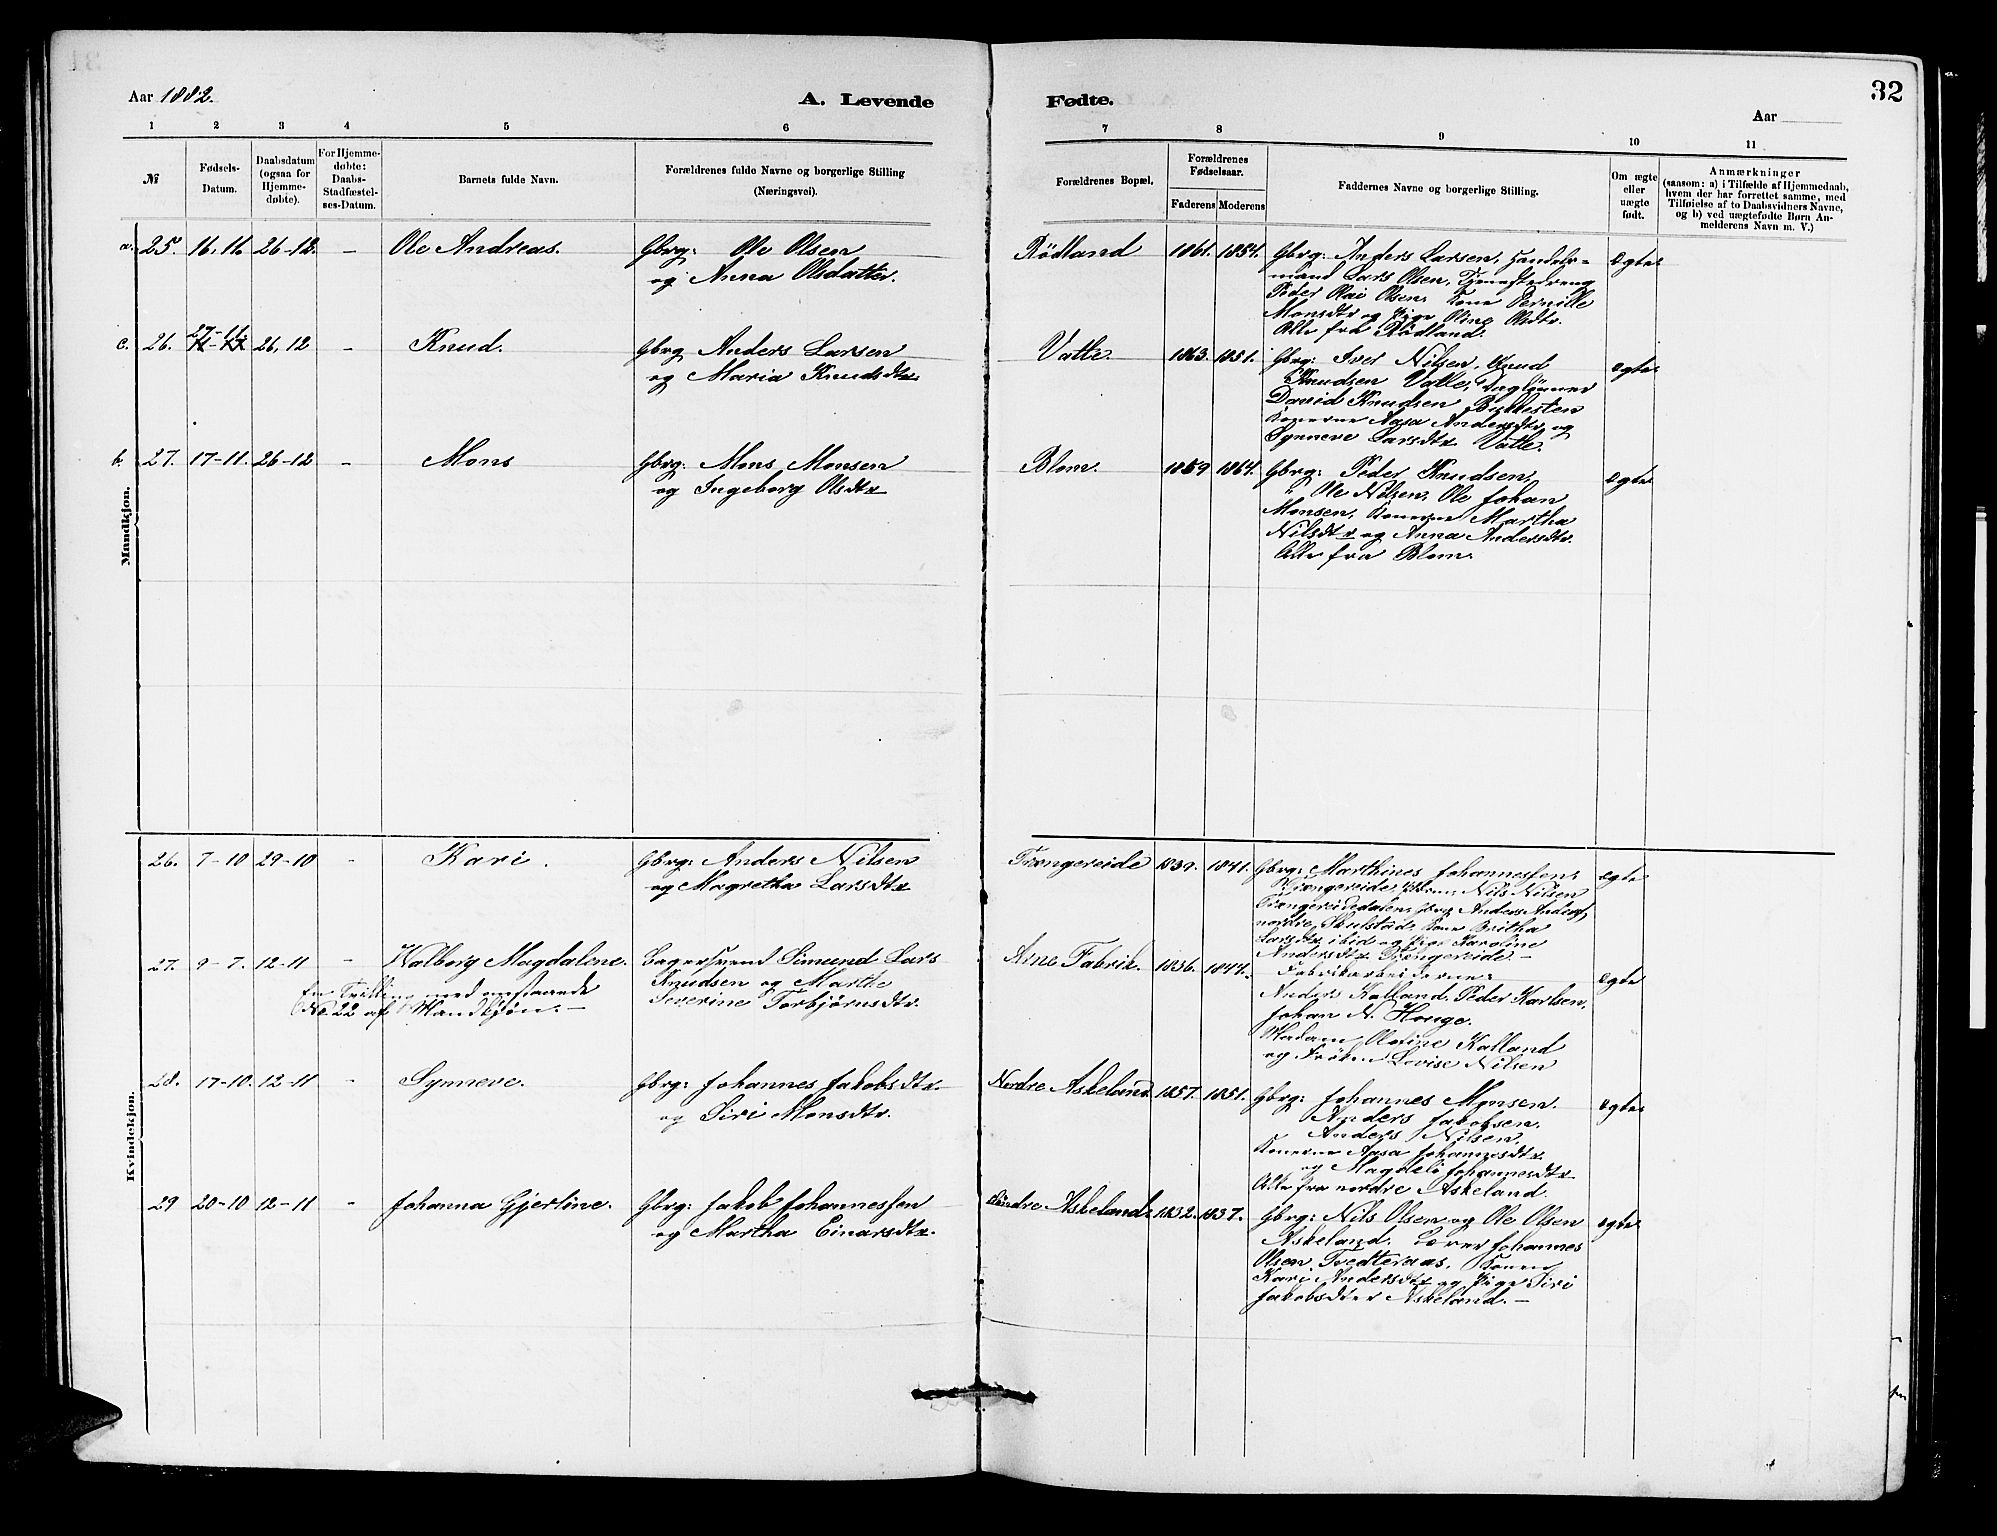 32
Aar 1882.
A. Levende
Fødte.
Aar
1 2 3 4 5 6
7 8 9 10 11
№
Fødsels-
Datum.
Daabsdatum
(ogsaa for
Hjemme-
døbte).
For Hjemme-
døbte:
Daabs-
Stadfæstel-
ses-Datum.
Barnets fulde Navn.
Forældrenes fulde Navne og borgerlige Stilling
(Næringsvei).
Forældrenes Bopæl.
Forældrenes
Fødselsaar.
Faderens Moderens
Faddernes Navne og borgerlige Stilling.
Om ægte
eller
uægte
født.
Anmærkninger
(saasom: a) i Tilfælde af Hjemmedaab,
hvem der har forrettet samme, med
Tilføielse af to Daabsvidners Navne,
og b) ved uægtefødte Børn An-
melderens Navn m. V.)
Mandkjøn.
a. 25. 16.11. 26-12. - Ole Andreas.
Gbrg: Ole Olsen
og Anna Olsdatter.
Rödland 1861. 1854.
Gbrg: Anders Larsen, Handels-
mand Lars Olsen, Tjenestedreng
Peder Olai Olsen, Kone Pernille
Monsdtr og Pige Oline Olsdtr.
Alle fra Rødland.
Ægte
c. 26. 27-11 26, 12 - Knud.
Gbrg Anders Larsen
og Maria Knudsdtr
Valle. 1863. 1851.
Gbrg: Iver Nilsen, Knud
Knudsen Valle, Daglönner
David Knudsen Birkesten
Konerne Aasa Andersdtr og
Synneve Larsdtr Valle.
ægte
b. 27. 17-11. 26-12 - Mons
Gbrg: Mons Monsen
og Ingeborg Olsdtr
Blom. 1859 1864.
Gbrg: Peder Knudsen,
Ole Nilsen, Ole Johan
Monsen, Konerne Martha
Nilsdtr og Anna Andersdtr.
Alle fra Blom.
Ægte
Kvindekjøn.
26. 7-10 29-10 - Kari.
Gbrg: Anders Nilsen
og Magretha Larsdtr
Trængereide 1839. 1841.
Gbrg: Marthines Johannessen
Trængereide, Nils Nilsen
Trængereidedalen, Gbrg Anders Anders
nordre Skulstad, Kone Britha
Larsdtr ibid og Pige Karoline
Andersdtr Trængereide -
ægte
27. 9-7. 12-11 - Valborg Magdalene.
En Tvilling med omstaaende
No 22 af Mandkjøn. -
Lagersvend Simund Lars
Knudsen og Marthe
Severine Torbjørnsdtr.
Arne Fabrik. 1836. 1844.
Fabrikarbeiderne
Anders Kalland, Peder Karlsen,
Johan N. Houge.
Madam Olevine Kalland
og Frøken Lovise Nilsen
Ægte
28. 17-10. 12-11 - Synneve.
Gbrg: Johannes Jakobsdtr
og Siri Monsdtr.
Nordre Askeland 1857. 1851.
Gbrg: Johannes Monsen.
Anders Jakobsen.
Anders Nilsen.
Konerne Aasa Johannesdtr
og Magdeli Johannesdtr
Alle fra nordre Askeland.
Ægte
29 20-10 12-11 - Johanna Gjertine.
Gbrg: Jakob Johannessen
og Martha Einarsdtr.
Söndre Askeland 1832. 1837.
Gbrg: Nils Olsen og Ole Olsen
Askeland. Lærer Johannes
Olsen Tvedteraas, Konen
Kari Andersdtr og Pige Siri
Jakobsdtr Askeland. -
ægte